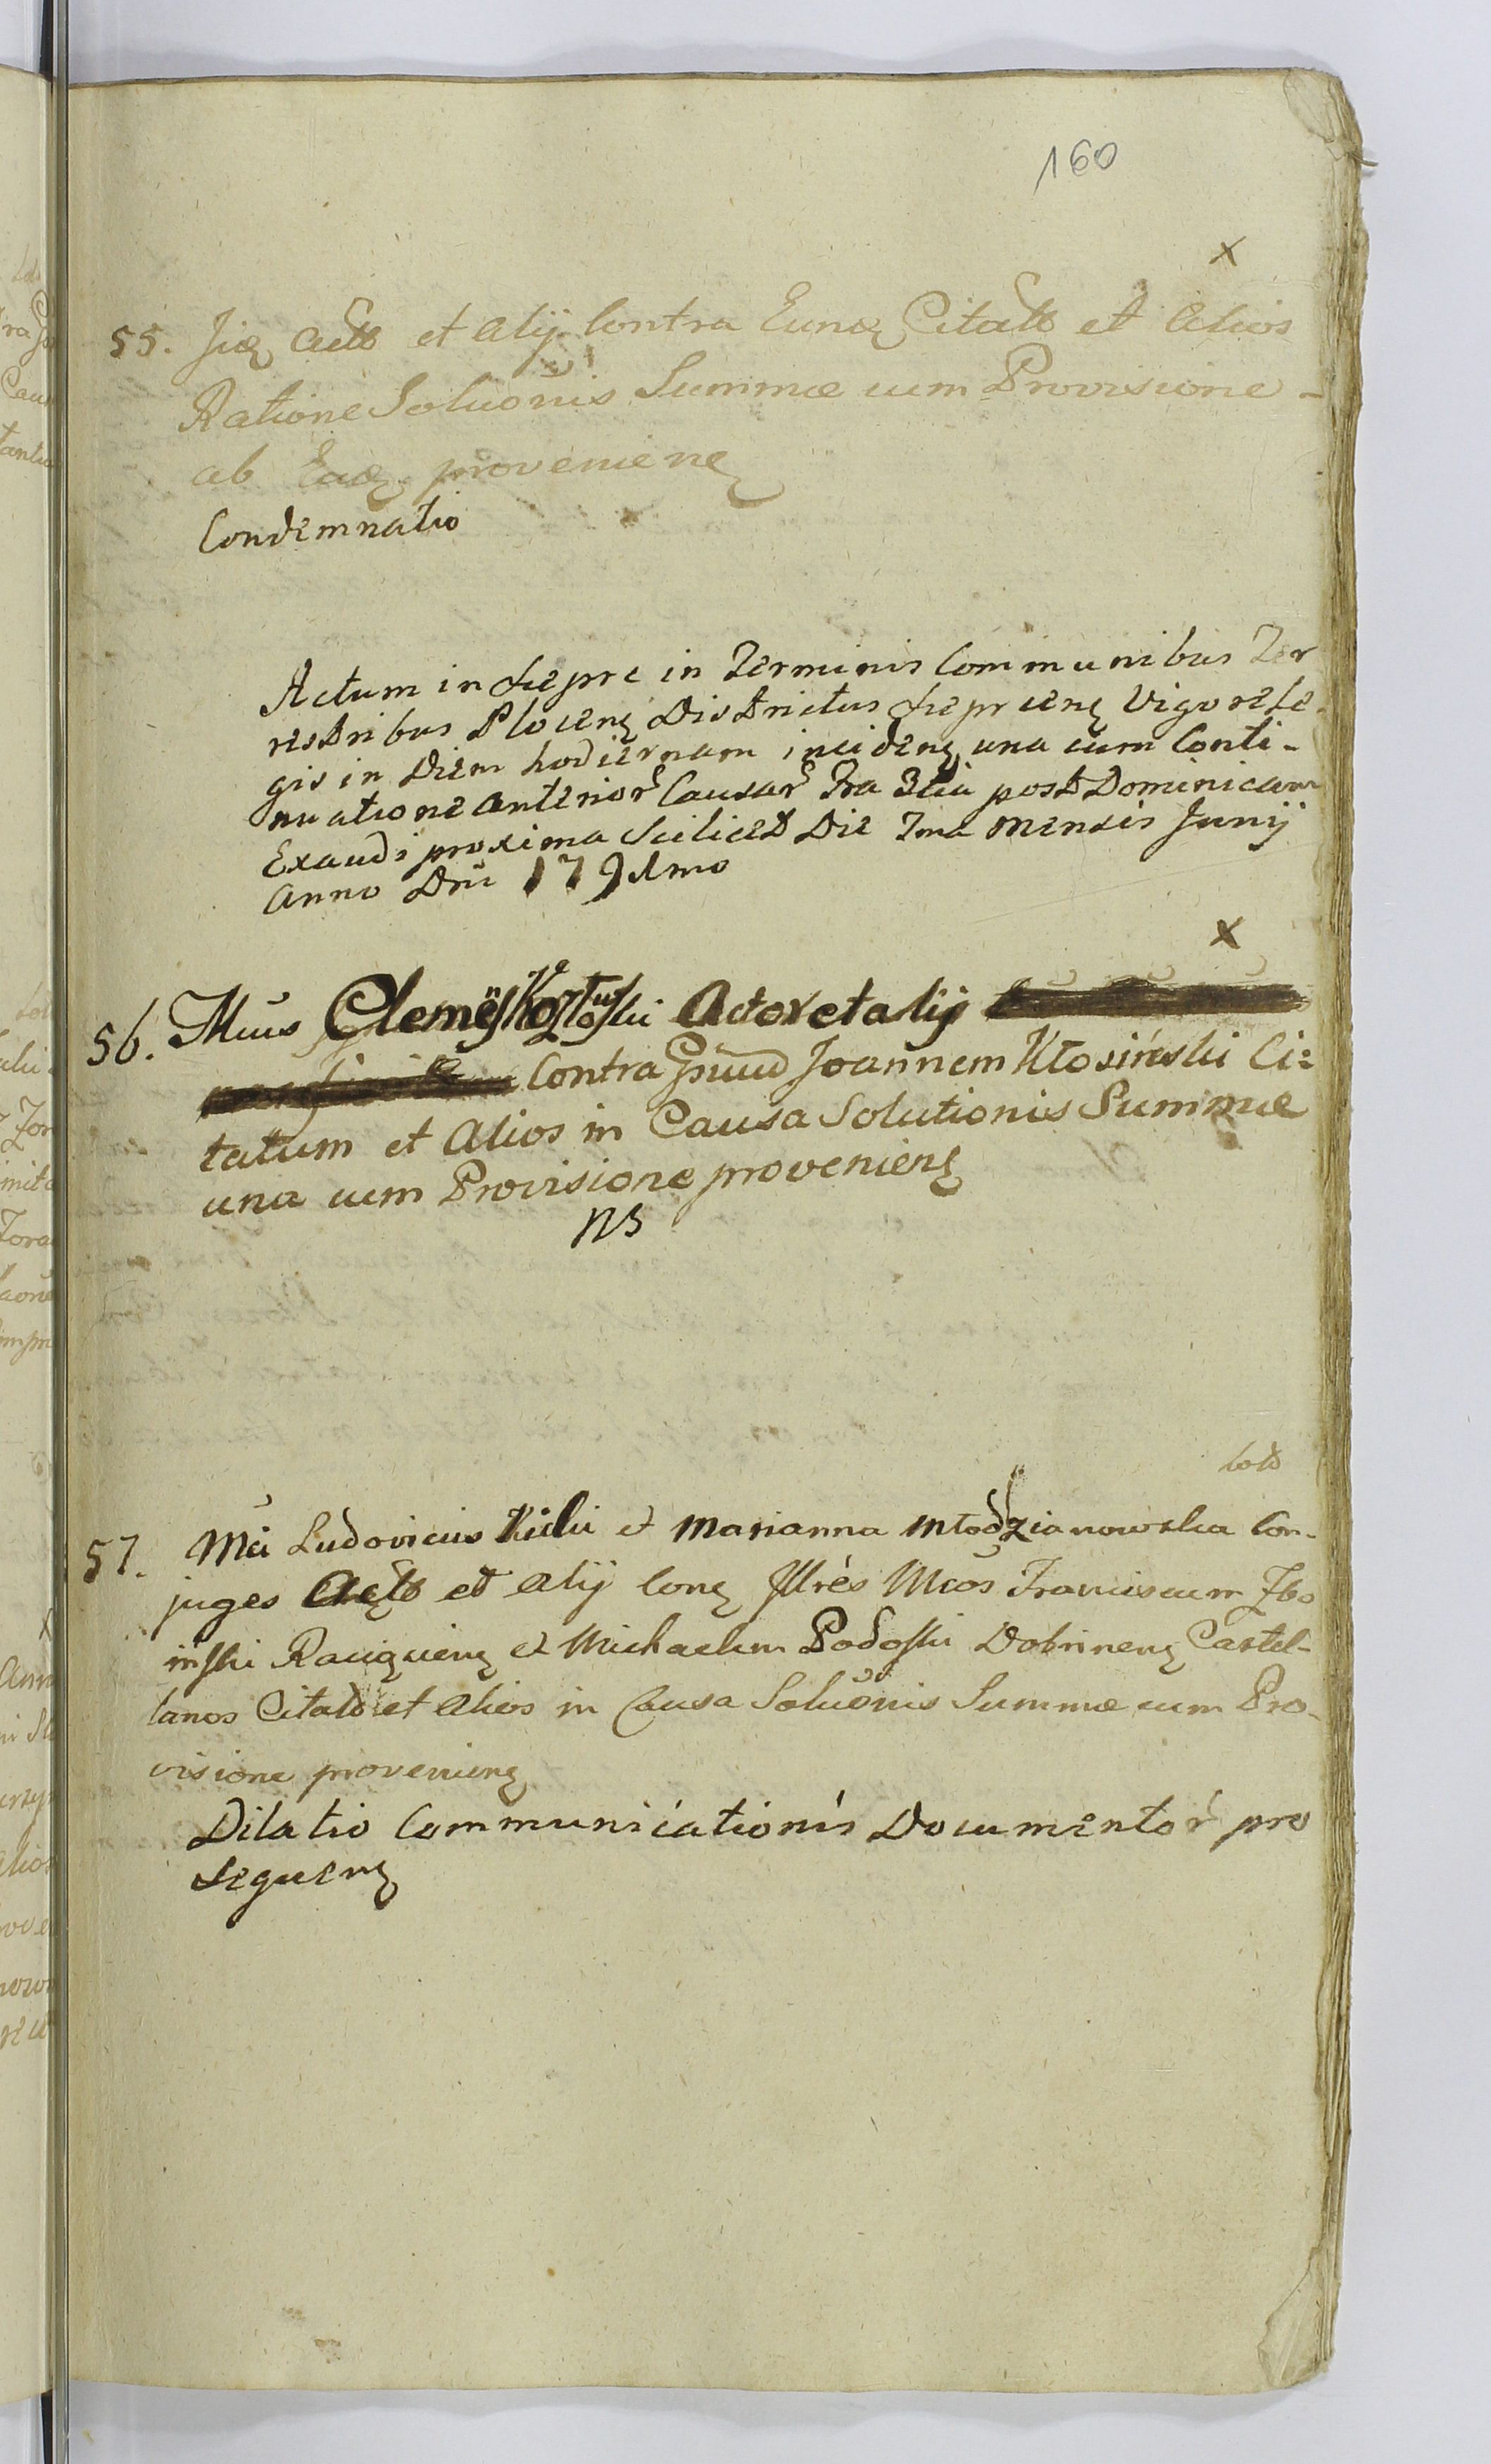 160
x
55. Jid Actt et alij Contra Eund Citatt et Alios
Ratione Soluōnis Summæ cum Provisione -
ab Ead provenien
Condemnatio
Actum in Siepre in Terminis Communibus Ter
restribus Plocen Districtus Sieprcen Vigore Le-
gis in Diem hodiernam inciden una cum Conti-
nuatione anterior Causar Fra 3tia post Dominicam
Exaudi proxima Scilicet Die 7ma Mensis Junij
Anno Dni 1791mo
x
56. Mcus Clemēs Kozłowski Actor et alij
Contra Gnūm Joannem Kłosiński Ci=
tatum et Alios in Causa Solutionis Summæ
una cum Provisione provenien
NB
57. Mci Ludovicus Kicki et Marianna Młodzianowska Con-
juges Actt et Alij Con Illres Mcos Franciscum Zbo
inski Raciąncien et Michaelem Podoski Dobrinen Castel-
lanos Citatt et Alios in Causa Soluōnis Summæ cum Pro-
visione provenien
Dilatio Communicationis Documentor pro
Sequen